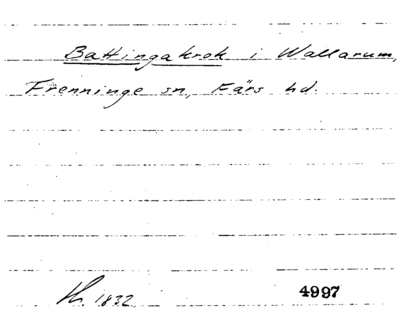 Battingakrok i Wallarum,
Frenninge sn, Färs hd.
1832
4997